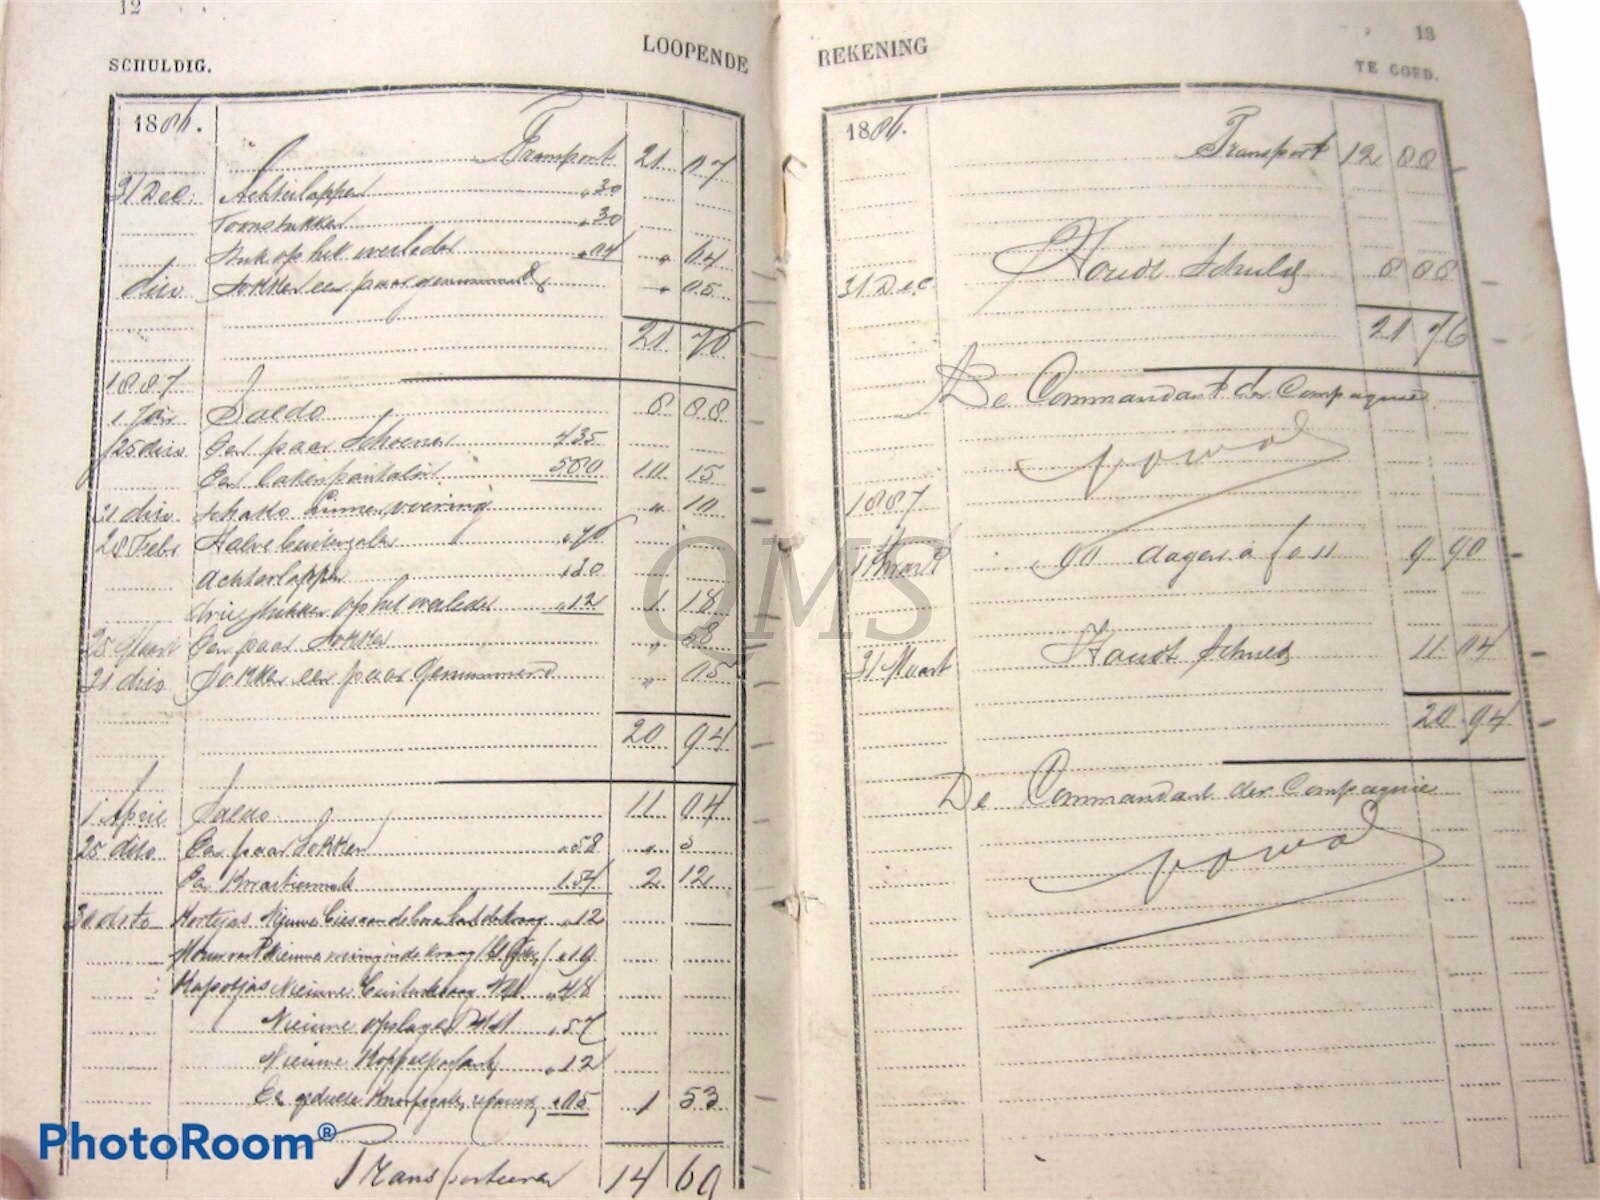 12
SCHULDIG.
LOOPENDE
1886.
Transport 21 07
31 Dec. Achterlappen " 30
Toonstukken " 30
Stuk op het overleder " 04 " 64
dito Sokken een paar genummerd " 05
21 76
1887
1 Jan Saldo 8 88
25 dito Een paar Schoenen 4 35
Een lakenpantalon 5 80 10 15
31 dito Schako binnenvoering " 10
28 Febr Halve buitenzolen " 76
Achterlappen " 30
Drie stukken op het overleder " 12 1 18
25 Maart Een paar Sokken " 58
31 dito Sokken een paar Genummerd " 05
20 94
1 April Saldo 11 04
25 dito Een paar Sokken " 58 "
Een Kwartiermuts 1.54 2 12
30 dito Kortejas Nieuwe bies aan de " 12
Nieuwe voering in de kraag " 19
Kapotjas Nieuwe " 48
Nieuwe opslagen " 57
Nieuwe Koppelpassant " 12
Een gedeelte Knoopsgaten " 05 1 53
Transporteeren 14 69
REKENING
13
TE GOED.
1886.
Transport 12 88
31 Dec Houdt Schuld 8 88
21 76
De Commandant der Compagnie
1887
1 Maart 90 dagen à f 0 11 9 90
31 Maart Houdt Schuld 11 04
20 94
De Commandant der Compagnie
QMS
PhotoRoom®